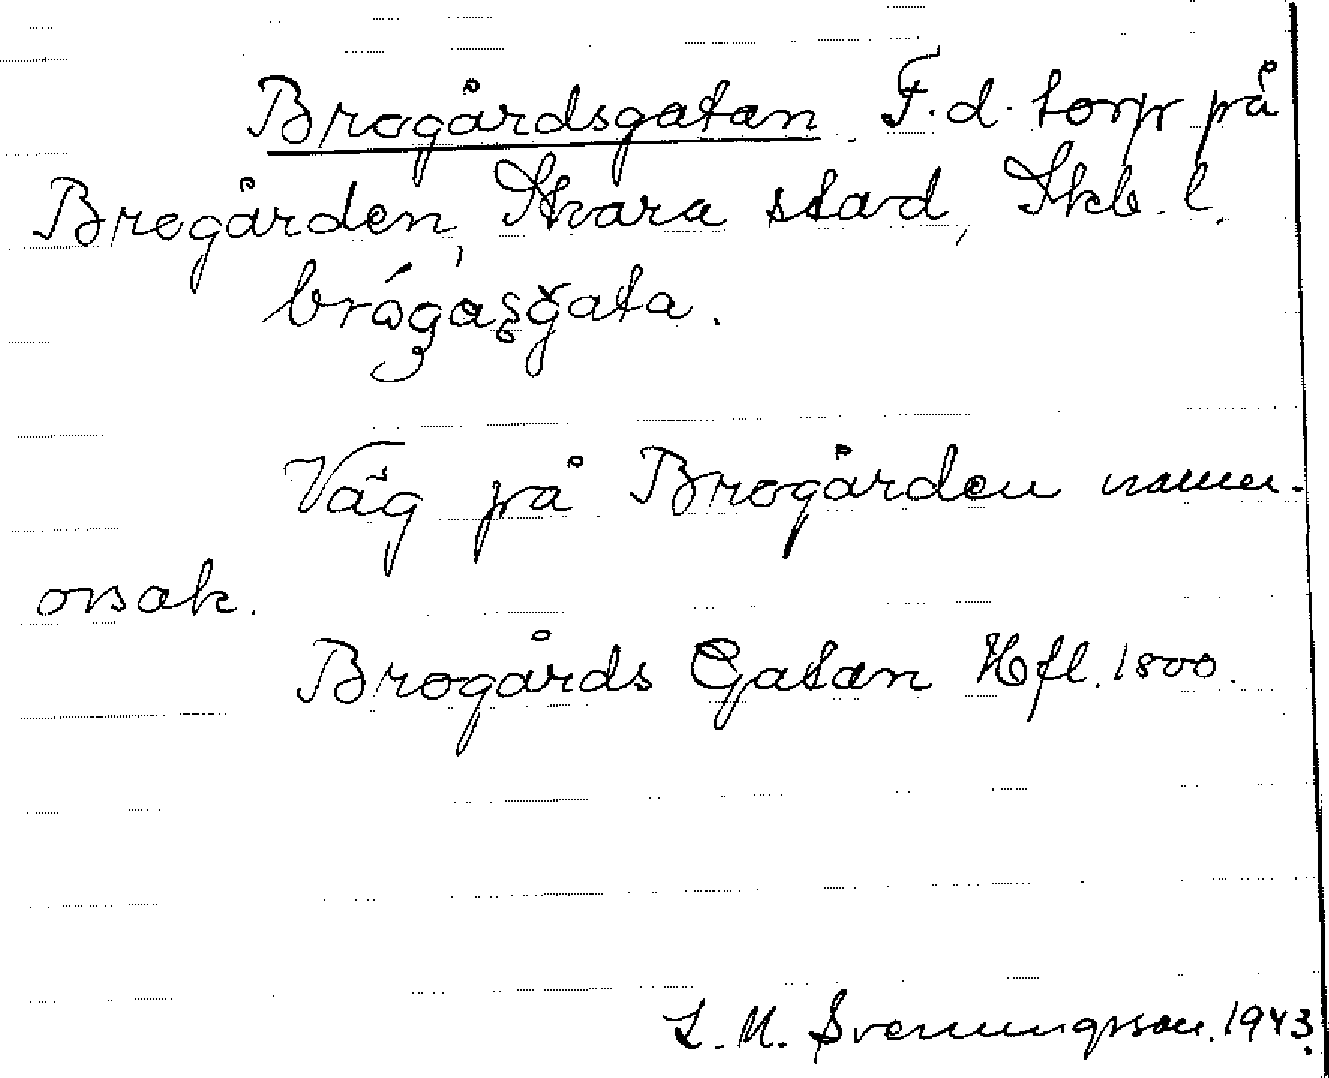 Brogårdsgatan. F.d. torp på
Brogården, Skara stad, Skb. l.
Väg på Brogården namn-
orsak.
Brogårds Gatan Hfl. 1800.
L. M. Svenungsson. 1943.